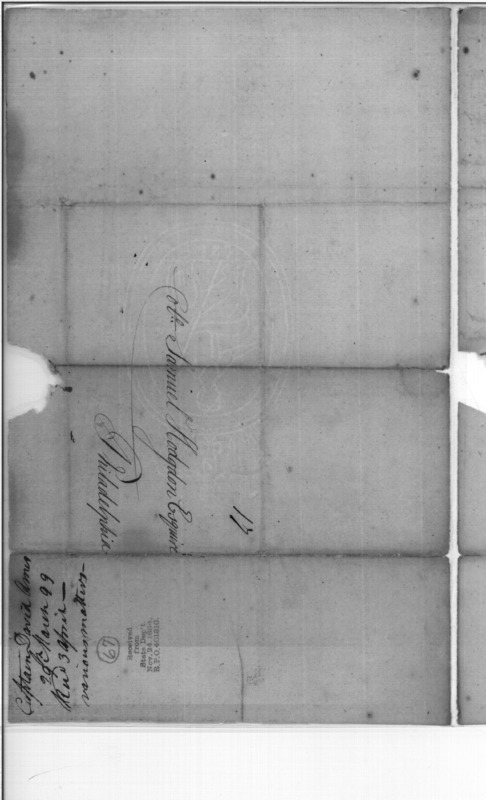 Colo. Samuel Hodgdon Esquire
Philadelphia
17
Captain David Ames
29th March 99
Recd 3 april —
various matters —
67
Received
from
State Dep't.
Nov. 24
R.P.O.